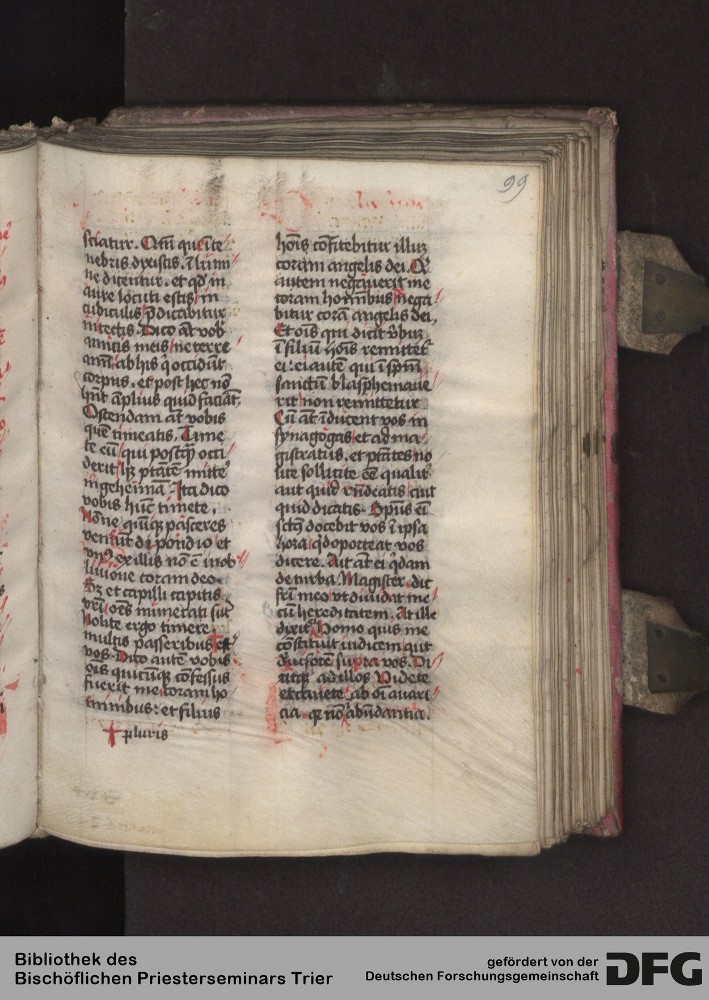 99
sciatur. Qm̄ que ī te
nebris dixistis. ī lumi
ne dicentur. et qd̛ in
aure locuti estis in
cubiculis p̄dicabitur
in tectis. Dico āt vob
amicis meis ne terre
ab his q̄ occidūt
corpus. et post hec nō
hn̄t āplius quid faciāt.
Ostendam āt vobis
quē timeatis. Time
te eū qui postq̄ occi
derit hȝ ptātē mitte
in gehennā. Ita dico
vobis hūc timete.
Nōne quīqȝ passeres
veneūt dipondio et
vnꝰ ex illis nō ē ī ob
liuione coram deo.
Sȝ et capilli capitis
vr̄i oēs numerati sūt
Nolite ergo timere
multis passeribus
vos. Dico autē vobis
oīs quicūqȝ cōfessus
fuerit me coram ho
minibus: et filius
pluris
hoīs cōfitebitur illuȝ
coram angelis dei. Qͥ
autem negauerit me
coram hominibus nega
bitur corā angelis dei.
Et oīs qui dicit v̄buȝ
ī filiū hoīs remittet᷑
ei: ei autē qui ī spm̄
sanctū blasphemaue
rit non remittetur
Cū āt īducent vos in
synagogas et ad ma
gistratus. et ptātes no
lite solliciti eē qualit᷑
aut quid rn̄deatis aut
quid dicatis. Spūs ei
sctūs docebit vos ī ipsa
hora qd̛ oporteat vos
dicere. Ait āt ei q̇dam
de turba. Magister dic
frī meo vt diuidat me
cū hereditatem. At ille
dixit Homo quis me
cōstituit iudicem aut
diuisorē supra vos. Di
xitqȝ ad illos Videte
et cauete ab oī auari
cia. qȝ nō ī abūdantia.
Bibliothek des
Bischöflichen Priesterseminars Trier
gefördert von der
Deutschen Forschungsgemeinschaft
DFG